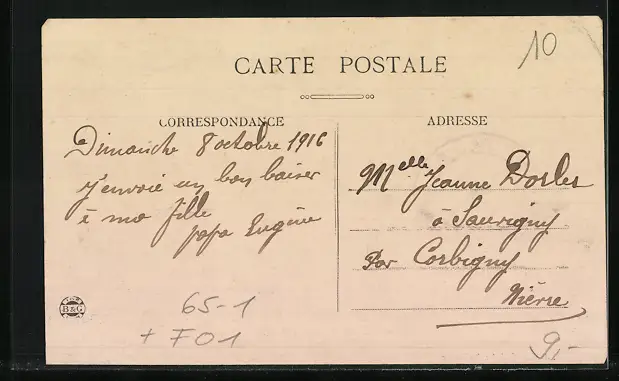 10
CARTE POSTALE
CORRESPONDANCE
Dimanche 8 octobre 1916
j'envoie un bon baiser
à ma fille
papa Eugène
ADRESSE
Melle Jeanne Dorlet
à Sauvigny
Par Corbigny
Nièvre
B&G
65-1
+ F01
9,-